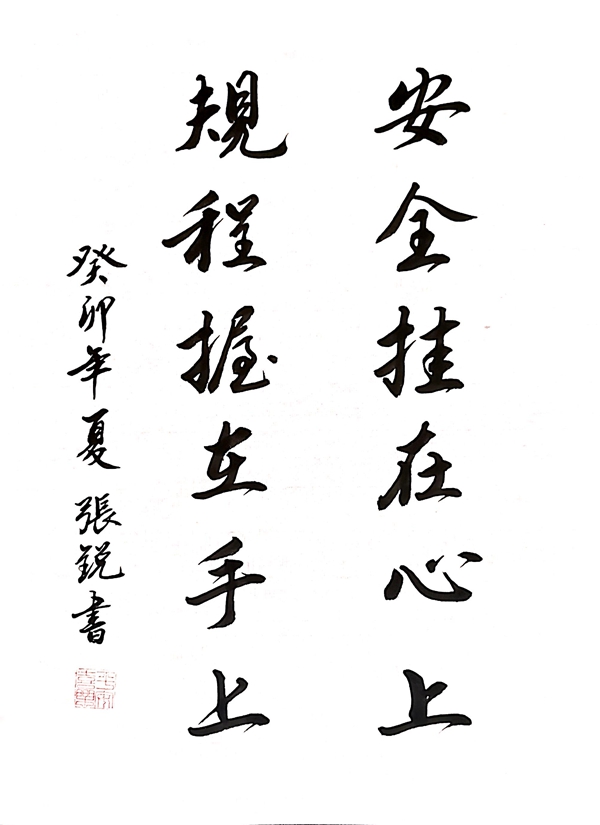 安全挂在心上
規程握在手上
癸卯年夏 張銳書